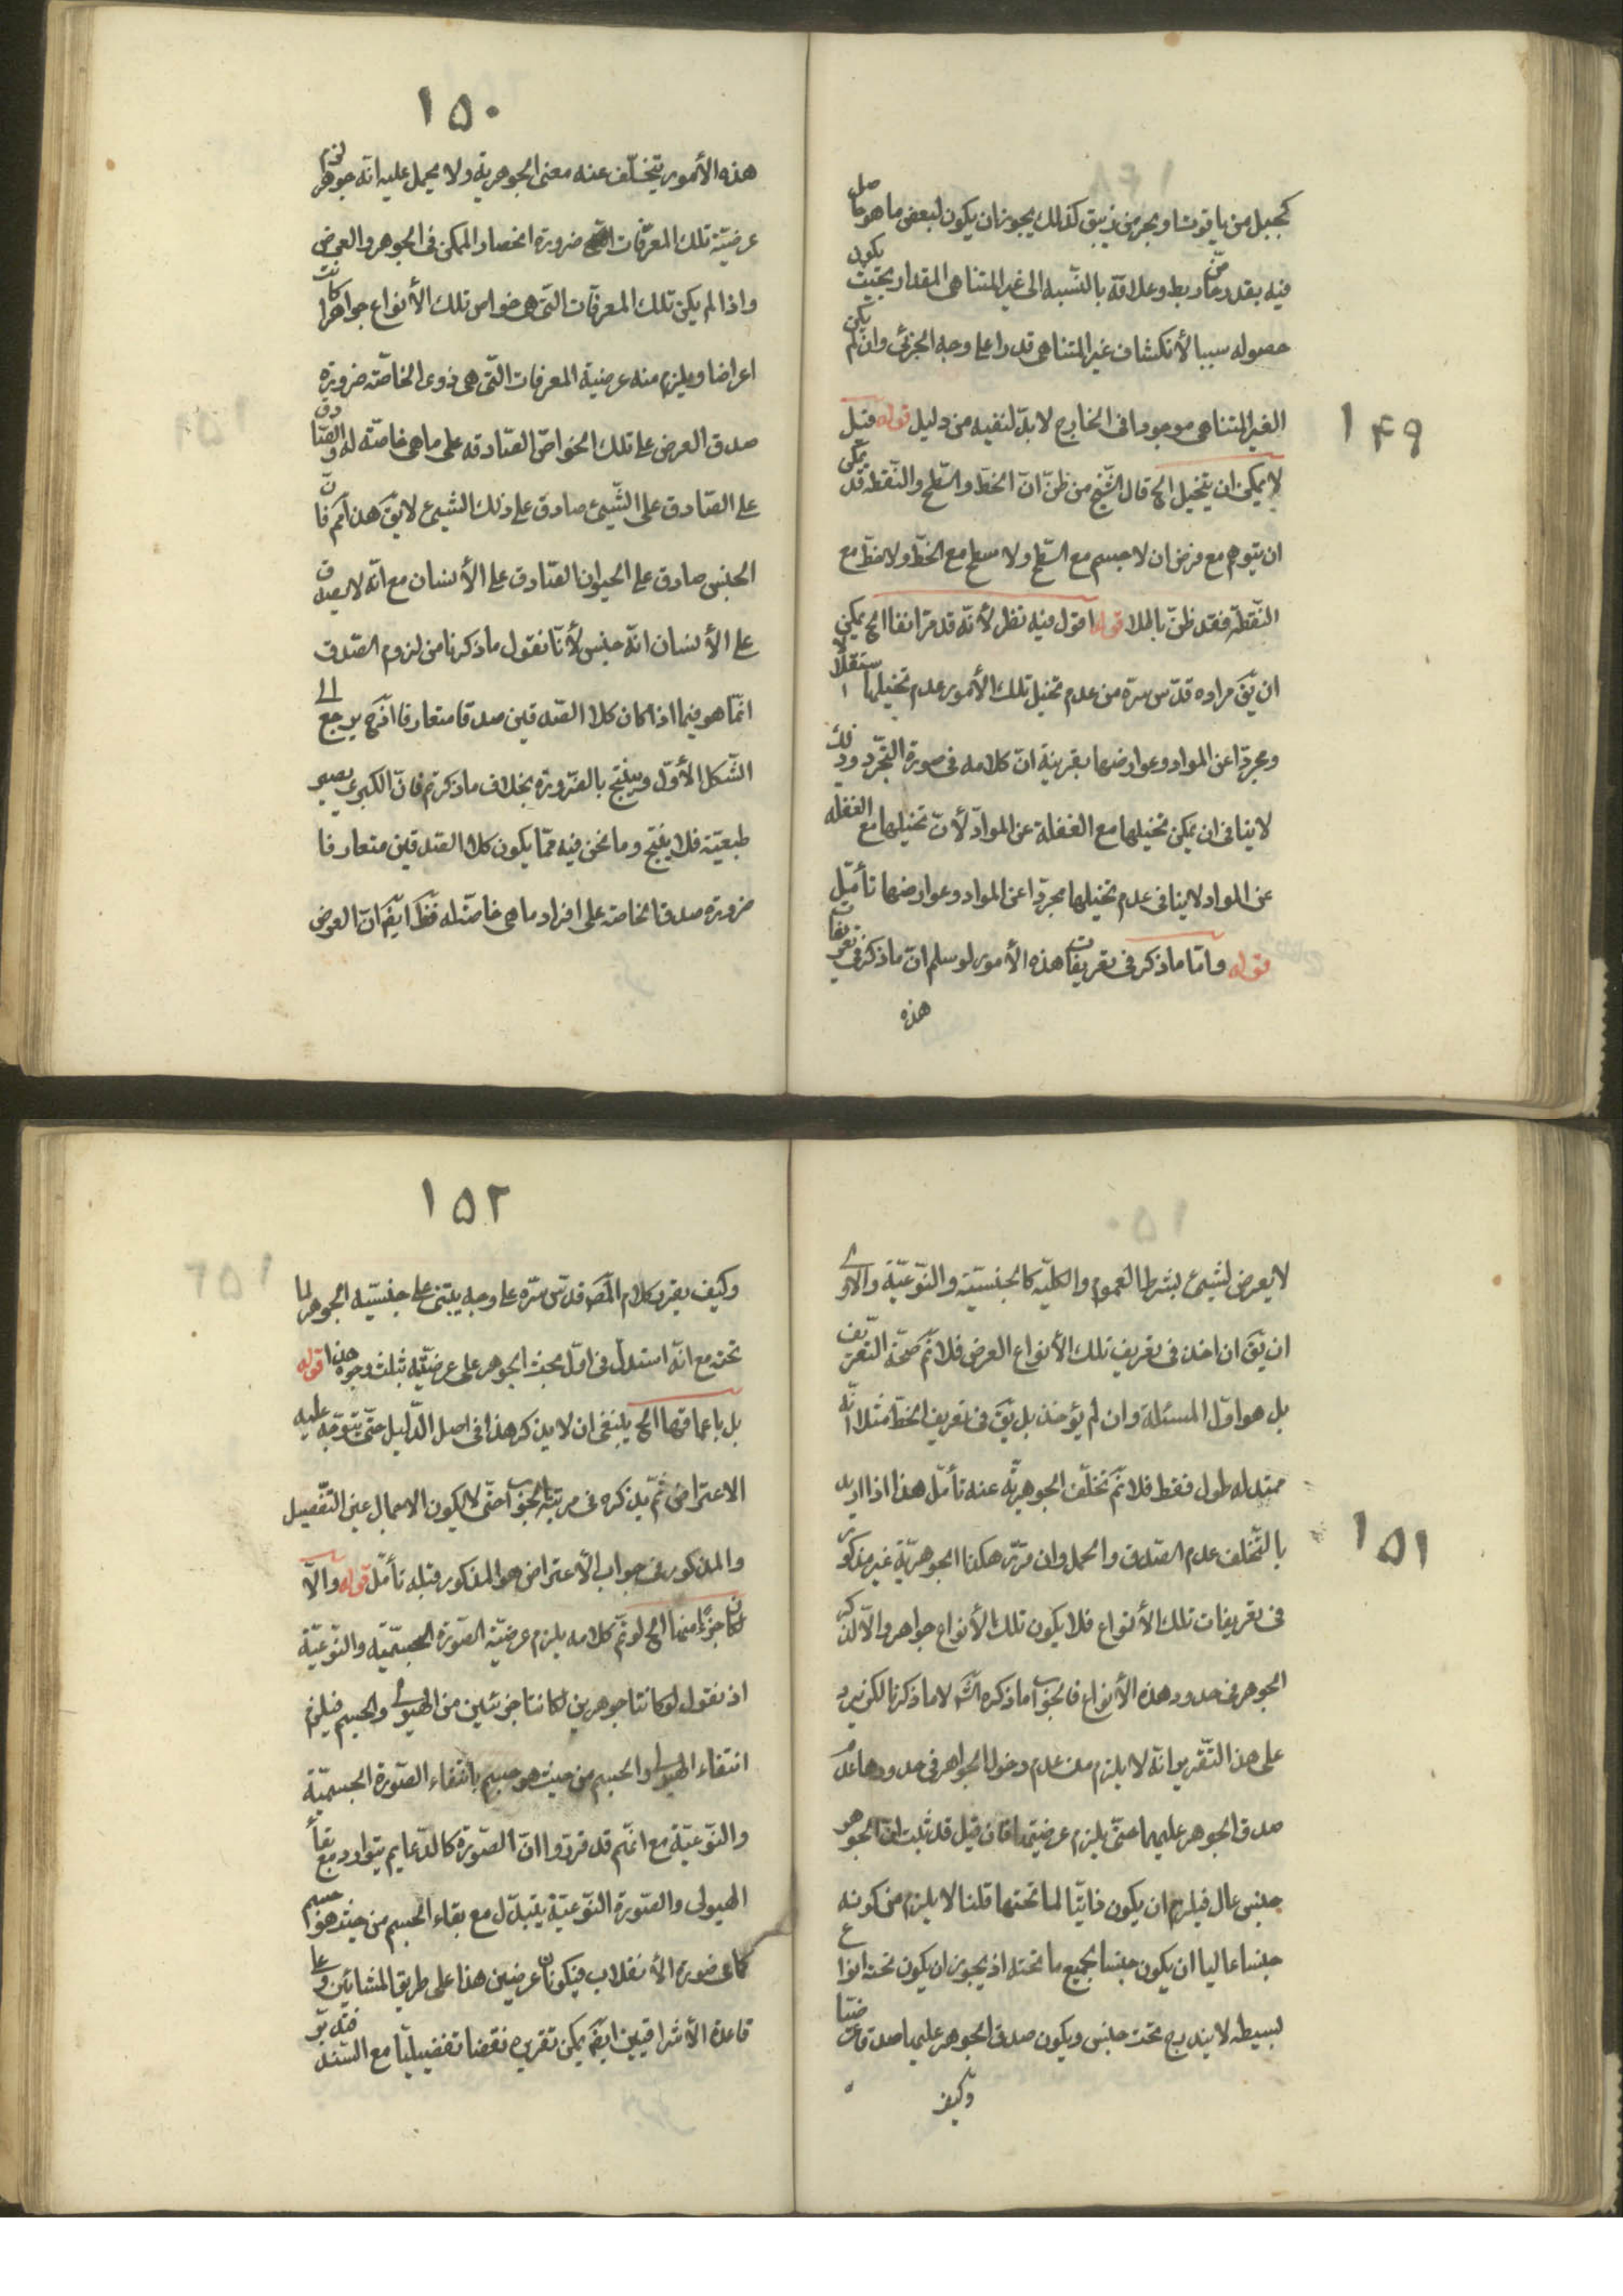 ١٤٩
كجبل من ياقوت او بحر من زيبق كذلك يجوز ان يكون لبعض ما هو حاصل
فيه بقدر ما ربط وعلاقة بالنسبة الى غير المتناهى المقدار بحيث يكون
حصوله سببا لأنكشاف غير المتناهى قدرا على وجه الجزئى وان لم يكن
الغير المتناهى موجودا فى الخارج لا بدّ لنفيه من دليل قوله قبل
لا يمكن ان يتخيل الخ قال الشّيخ من ظنّ انّ الخطّ والسّطح والنّقطه قد يمكن
ان يتوهم مع فرض ان لا جسم مع السّطح ولا سطح مع الخطّ ولا خطّ مع
النّقطة فقد ظنّ باطلا قوله اقول فيه نظر لأنّه قد مرّ انفا الخ يمكن
ان يقّ مراده قدّس سرّه من عدم تخيل تلك الأمور عدم تخيلها استقلالا
ومجردا عن المواد وعوارضها بقرينة انّ كلامه فى صورة التجرّد وذلك
لا ينافى ان يمكن تخيلها مع الغفلة عن الموادّ لأنّ تخيلها مع الغفله
عن المواد لا ينافى عدم تخيلها مجردا عن المواد وعوارضها تأمّل
قوله وامّا ما ذكر فى تعريفات هذه الأمور لو سلم ان ما ذكر فى تعريفات
هذه
١٥٠
هذه الأمور يتخلّف عنه معنى الجوهرية ولا يحمل عليه انّه جوهر لزم
عرضيّة تلك المعرّفات ضرورة انحصار الممكن فى الجوهر والعرض
واذا لم يكن تلك المعرفات التّى هى خواص تلك الأنواع جواهر كانت
اعراضا ويلزم منه عرضية المعرفات التّى هى ذوى الخاصّة ضرورة
صدق العرض على تلك الخواصّ الصّادقه على ماهى خاصّته له والصّادق
على الصّادق على الشّيئ صادق على ذلك الشيئ لا يقّ هذا كم فانّ
الجنس صادق على الحيوان الصّادق على الأنسان مع انّه لا يصدق
على الأنسان انّه جنس لأنّا نقول ما ذكرنا من لزوم الصّدق
انّما هو فيما اذا كان كلا الصّدقين صدقا متعارفا اذ ح يرجع الى
الشّكل الأوّل وينتج بالضّرورة بخلاف ما ذكرتم فانّ الكبرى يصير
طبعيّة فلا ينتج وما نحن فيه ممّا يكون كلا الصّدقين متعارفا
ضرورة صدق الخاصّة على افراد ماهى خاصّة له فظهر ايضا انّ العرض
١٥١
لا يعرض لشيئ بشرط العموم والكليّة كالجنسيّة والنّوعيّة والأولى
ان يقّ ان اخذ فى تعريف تلك الأنواع العرض فلانم صحّة التعريف
بل هو اوّل المسئلة وان لم يؤخذ بل يقّ فى تعريف الخطّ مثلا انّه
ممتد له طول فقط فلانم تخلّف الجوهريّة عنه تأمّل هذا اذا اريد
بالتّخلف عدم الصّدق والحمل وان قرّر هكذا الجوهريّة غير مذكور
فى تعريفات تلك الأنواع فلا يكون تلك الأنواع جواهر والّا لذكر
الجوهر فى حدود هذه الأنواع فالجوآب ما ذكره الشّ لا ما ذكرنا لكن يرد
على هذا التّقرير انّه لا يلزم من عدم دخول الجواهر فى حدودها عدم
صدق الجوهر عليهما حتّى يلزم عرضيّتها فان قيل قد ثبت انّ الجوهر
جنس عال فيلزم ان يكون ذاتيّا لما تحتها قلنا لا يلزم من كونه
جنسا عاليا ان يكون جنسا لجميع ما تحته اذ يجوز ان يكون تحته انواع
بسيطه لا يندرج تحت جنس ويكون صدق الجوهر عليها صدقا عرضيّا
وكيف
١٥٢
وكيف يقرر كلام المصّ قدّس سرّه على وجه يبتنى على جنسيّه الجوهر لما
تحته مع انّه استدلّ فى اوّل بحث الجوهر على عرضيّته بثلث وجوه هذا قوله
بل باعماقها الخ ينبغى ان لا يذكر هذا فى اصل الدّليل حتّى يتوجّه عليه
الاعتراض ثمّ يذكره فى مرتبة الجوآب حتّى لا يكون الاجمال عين التّفصيل
والمذكور فى جواب الأعتراض هو المذكور قبله تأمّل قوله والّا
لكان جزءا منها الخ لو تمّ كلامه يلزم عرضيّة الصّورة الجسميّة والنّوعيّة
اذ نقول لو كانتا جوهرين لكانتا جزئين من الهيولى والجسم فيلزم
انتفاء الهيولى والجسم من حيث هو جسم بانتفاء الصّورة الجسميّة
والنّوعيّة مع انّهم قد قرّروا انّ الصّورة كالدّعايم يتوارد مع بقاء
الهيولى والصّورة النّوعيّة يتبدّل مع بقاء الجسم من حيث هو جسم
كما فى صورة الأنقلاب فيكونان عرضين هذا على طريق المشائين وعلى
قاعدة الأشراقيين ايضا يمكن تقريره نقضا تفصيليّا مع السّند فتدبّر